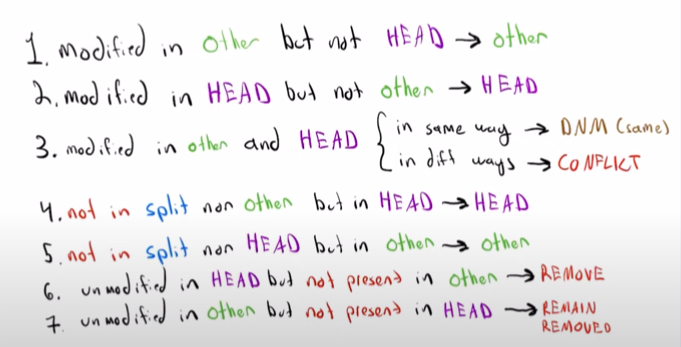 1. modified in other but not HEAD → other
2. modified in HEAD but not other → HEAD
3. modified in other and HEAD { in same way → DNM (same)
in diff ways → CONFLICT
4. not in split nor other but in HEAD → HEAD
5. not in split nor HEAD but in other → other
6. unmodified in HEAD but not present in other → REMOVE
7. unmodified in other but not present in HEAD → REMAIN
REMOVED